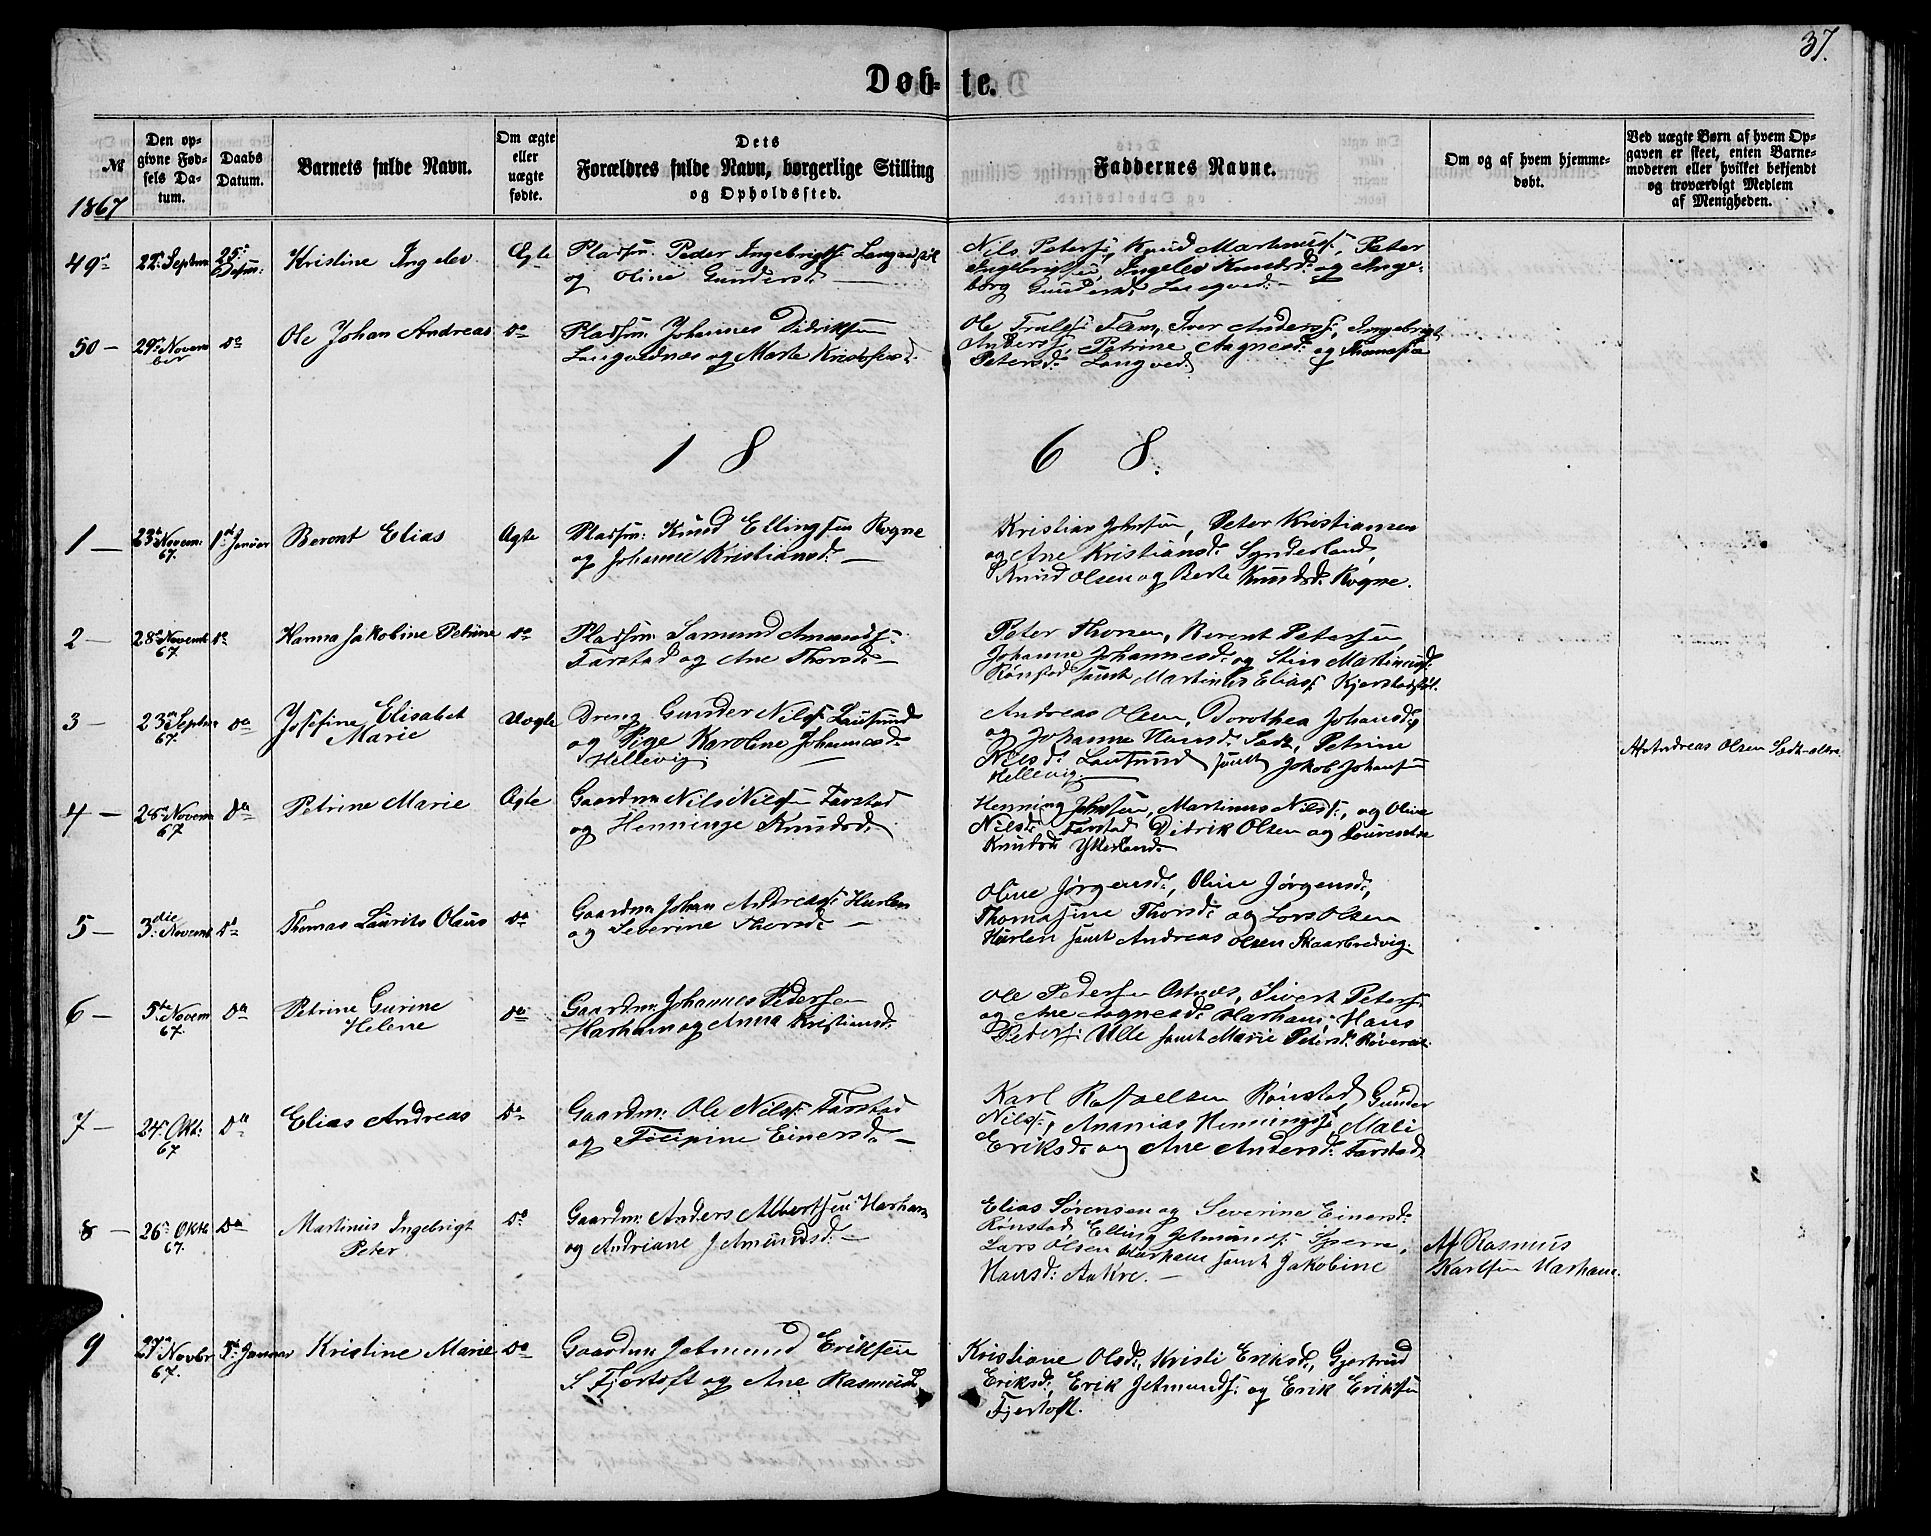 37.
Døb- te.
№
1867
Den op-
givne Fød-
sels Da-
tum.
Daabs
Datum.
Barnets fulde Navn.
Om ægte
eller
uægte
fødte.
Dets
Forældres fulde Navn, borgerlige Stilling
og Opholdssted.
Faddernes Navne.
Om og af hvem hjemme-
døbt.
Ved uægte Børn af hvem Op-
gaven er skeet, enten Barne-
moderen eller hvilket bekjendt
og troværdigt Medlem
af Menigheden.
49 22 Septm 25 Desm: Kristine Ingelev Ægte
Pladsm: Peder Ingebrigts:
og Oline Gundersd: —
Nils Peters:, Knud Martinus:, Peter
Ingebrigtsen, Ingelev Knudsd: og Inge-
borg Gundersd: Longved: —
50 — 29 Novem
ber
Do Ole Johan Andreas do
Pladsm: Johannes Didriksen
Longvednæs og Marte Kristofersd:
Ole Truls: Flem, Iver Anders:, Ingebrigt
Anders:, Petrine Aagnesd: og Thomasine
Petersd: Longved
1 8 6 8.
1 — 23 Novem:
67.
1 Januar Beront Elias Ægte
Pladsm: Knud Ellingsen Rogne
og Johanne Kristiansd: —
Kristian Johnsen, Peter Kristiansen
og Ane Kristiansd: Synderland,
Knud Olsen og Berte Knudsd: Rogne.
2 — 28 Novemb
67.
do Hanna Jakobine Petrine do
Pladsm: Samund Amunds:
Farstad og Ane Thorsd: —
Peter Thorsen, Berent Petersen
Johanne Johannesd: og Stine Martinusd:
Rønstad samt Martinus Elias: Kjerstadstøl.
3 — 23 Septm
67.
Do Josefine Elisabet
Marie
Uægte
Dreng Gunder Nils: Lausund
og Pige Karoline Johannesd:
Hellevig. —
Andreas Olsen, Dorothea Johansd:
og Johanne Hansd: Sætr, Petrine
Nilsd: Lausund samt Jakob Johansen
Hellevig. —
Af Andreas Olsen Sætr
4 — 28 Novem
67
Do Petrine Marie Ægte
Gaardm: Nils Nilsen Farstad
og Henninge Knudsd:
Henning Johnsen, Martinus Nils:, og Oline
Nilsd: Farstad Didrik Olsen og Lourentse
Knudsd: Ytterland.
5 — 3die Novemb do Thomas Laurits Olaus do
Gaardm: Johan Andreas: Hurlen
og Severine Thorsd: —
Oline Jørgensd:, Oline Jørgensd:,
Thomasine Thorsd: og Lars Olsen
Hurlen samt Andreas Olsen Skaarbredvig.
6 — 5te Novem
67.
Do Petrine Gurine
Helene
do
Gaardm: Johannes Pedersen
Harham og Anna Kristiansd:
Ole Pedersen Astnæs, Sivert Peters:
og Ane Aagnesd: Harham, Hans
Peders: Ulle samt Marie Petersd:
7 — 24 Okt:
67
Do Elias Andreas Do
Gaardm: Ole Nils: Farstad
og Filipine Einersd: —
Karl Rafaelsen Rønstad, Gunder
Nils:, Ananias Hennings:, Mali
Eriksd: og Ane Andersd: Farstad
8 — 26 Oktb
67.
Do Martinus Ingebrigt
Peter
Do
Gaardm: Anders Albertsen Harham
og Andriane Jetmundsd: —
Elias Sørensen og Severine Einersd:
Rønstad, Elling Jetmunds: Sperre,
Lars Olsen Harham samt Jakobine
Hansd: Aakre. —
Af Rasmus
Karlsen Harham.
9 27 Novbr
67.
5 Januar Kristine Marie Do
Gaardm: Jetmund Eriksen
Fjertoft og Ane Rasmusd:
Kristiane Olsd:, Kristi Eriksd:, Gjertrud
Eriksd:, Erik Jetmunds: og Erik Eriksen
Fjertoft.